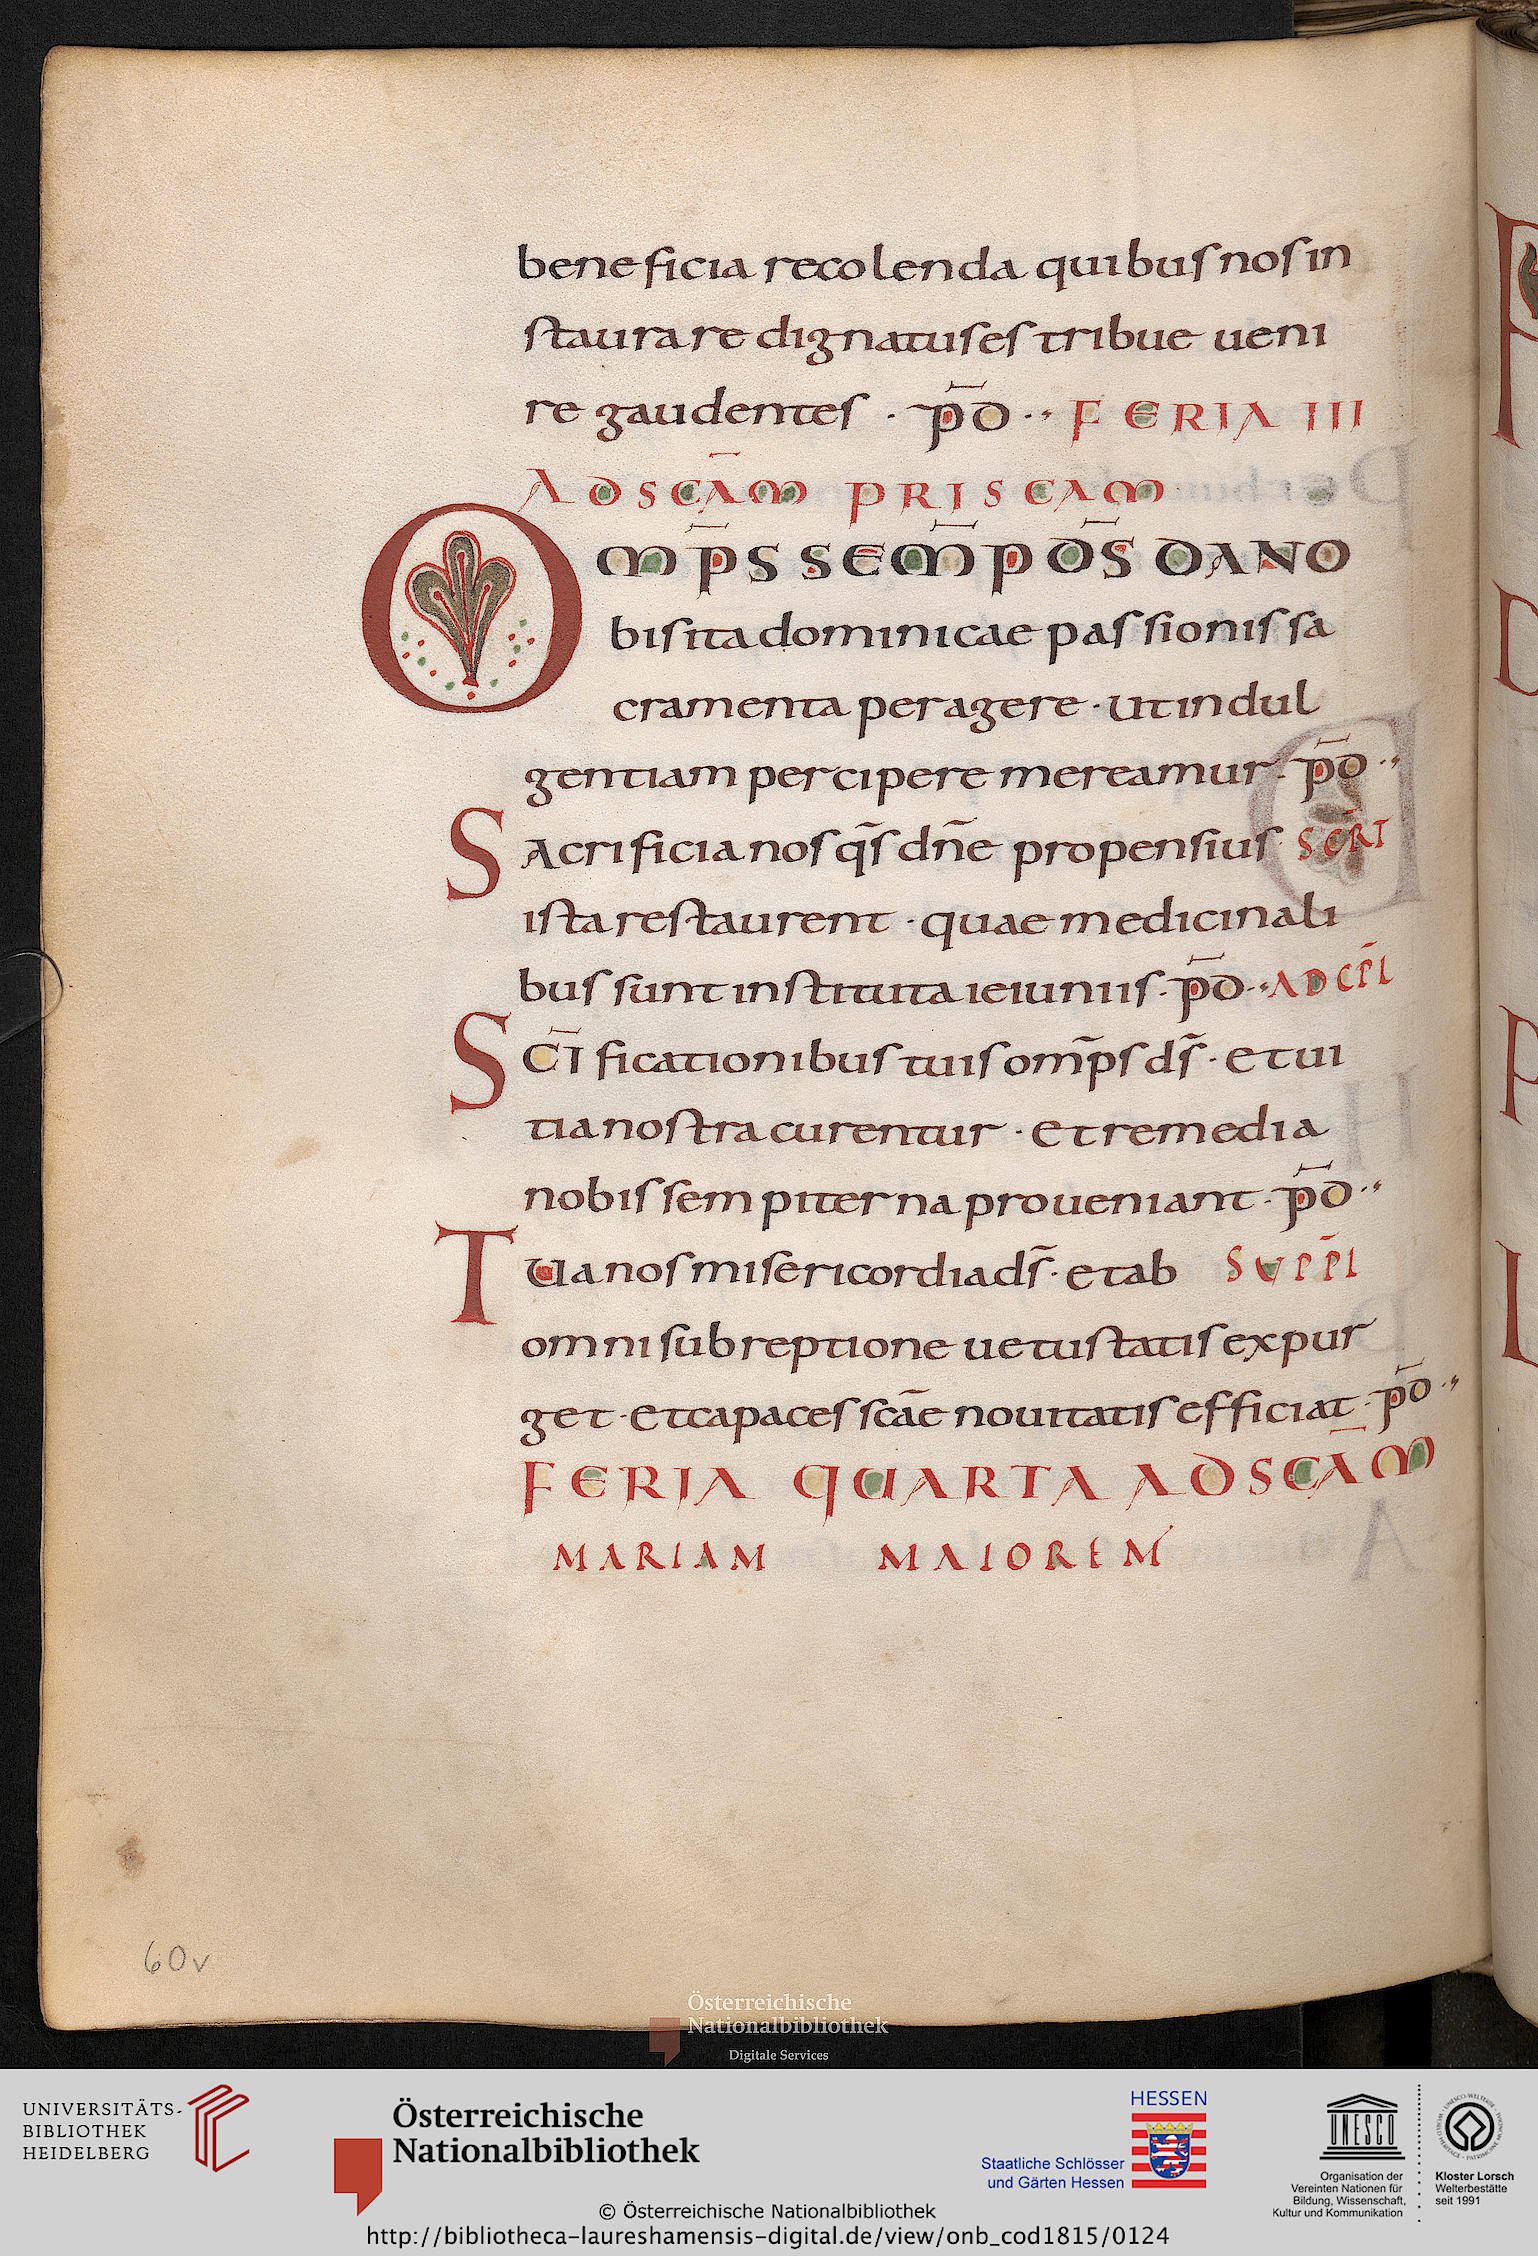 beneficia recolenda quibus nos in
staurare dignatus es tribue ueni
re gaudentes · p̄d ·· FERIA III
AD SCĀM PRISCAM
OMP̄S SEMP̄ D̄S DA NO
bis ita dominicae passionis sa
cramenta peragere · ut indul
gentiam percipere mereamur · p̄d ··
Sacrificia nos q̄s dn̄e propensius SCR̄T
ista restaurent · quae medicinali
bus sunt instituta ieiuniis · p̄d ·· AD CP̄L
SC̄Ificationibus tuis om̄ps ds̄ · et ui
tia nostra curentur · et remedia
nobis sempiterna proueniant · p̄d ··
TUa nos misericordia ds̄ · et ab SUPP̄L
omni subreptione uetustatis expur
get · et capaces scāe nouitatis efficiat · p̄d ··
FERIA QUARTA AD SCĀM
MARIAM MAIOREM
60v
Österreichische
Nationalbibliothek
Digitale Services
UNIVERSITÄTS-
BIBLIOTHEK
HEIDELBERG
Österreichische
Nationalbibliothek
HESSEN
Staatliche Schlösser
und Gärten Hessen
UNESCO
Organisation der
Vereinten Nationen für
Bildung, Wissenschaft,
Kultur und Kommunikation
Kloster Lorsch
Welterbestätte
seit 1991
© Österreichische Nationalbibliothek
http://bibliotheca-laureshamensis-digital.de/view/onb_cod1815/0124